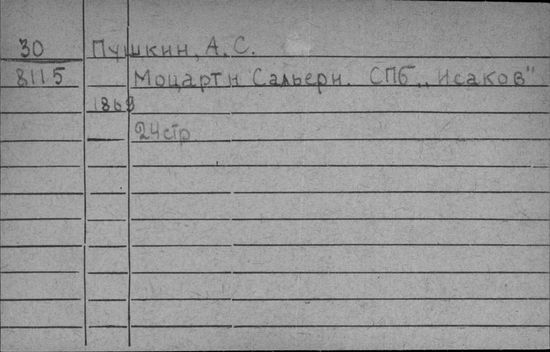 30 Пушкин, А. С.
8115 Моцарт и Сальери. СПб „Исаков"
1863
24 стр